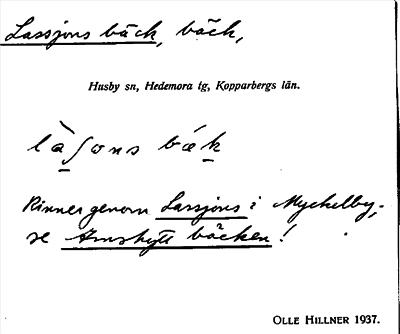 Lassjons bäck, bäck,
Husby sn, Hedemora tg, Kopparbergs län.
là̱ʃons bæḵ
Rinner genom Lassjons i Myckelby;
se Amshytt bäcken!
OLLE HILLNER 1937.